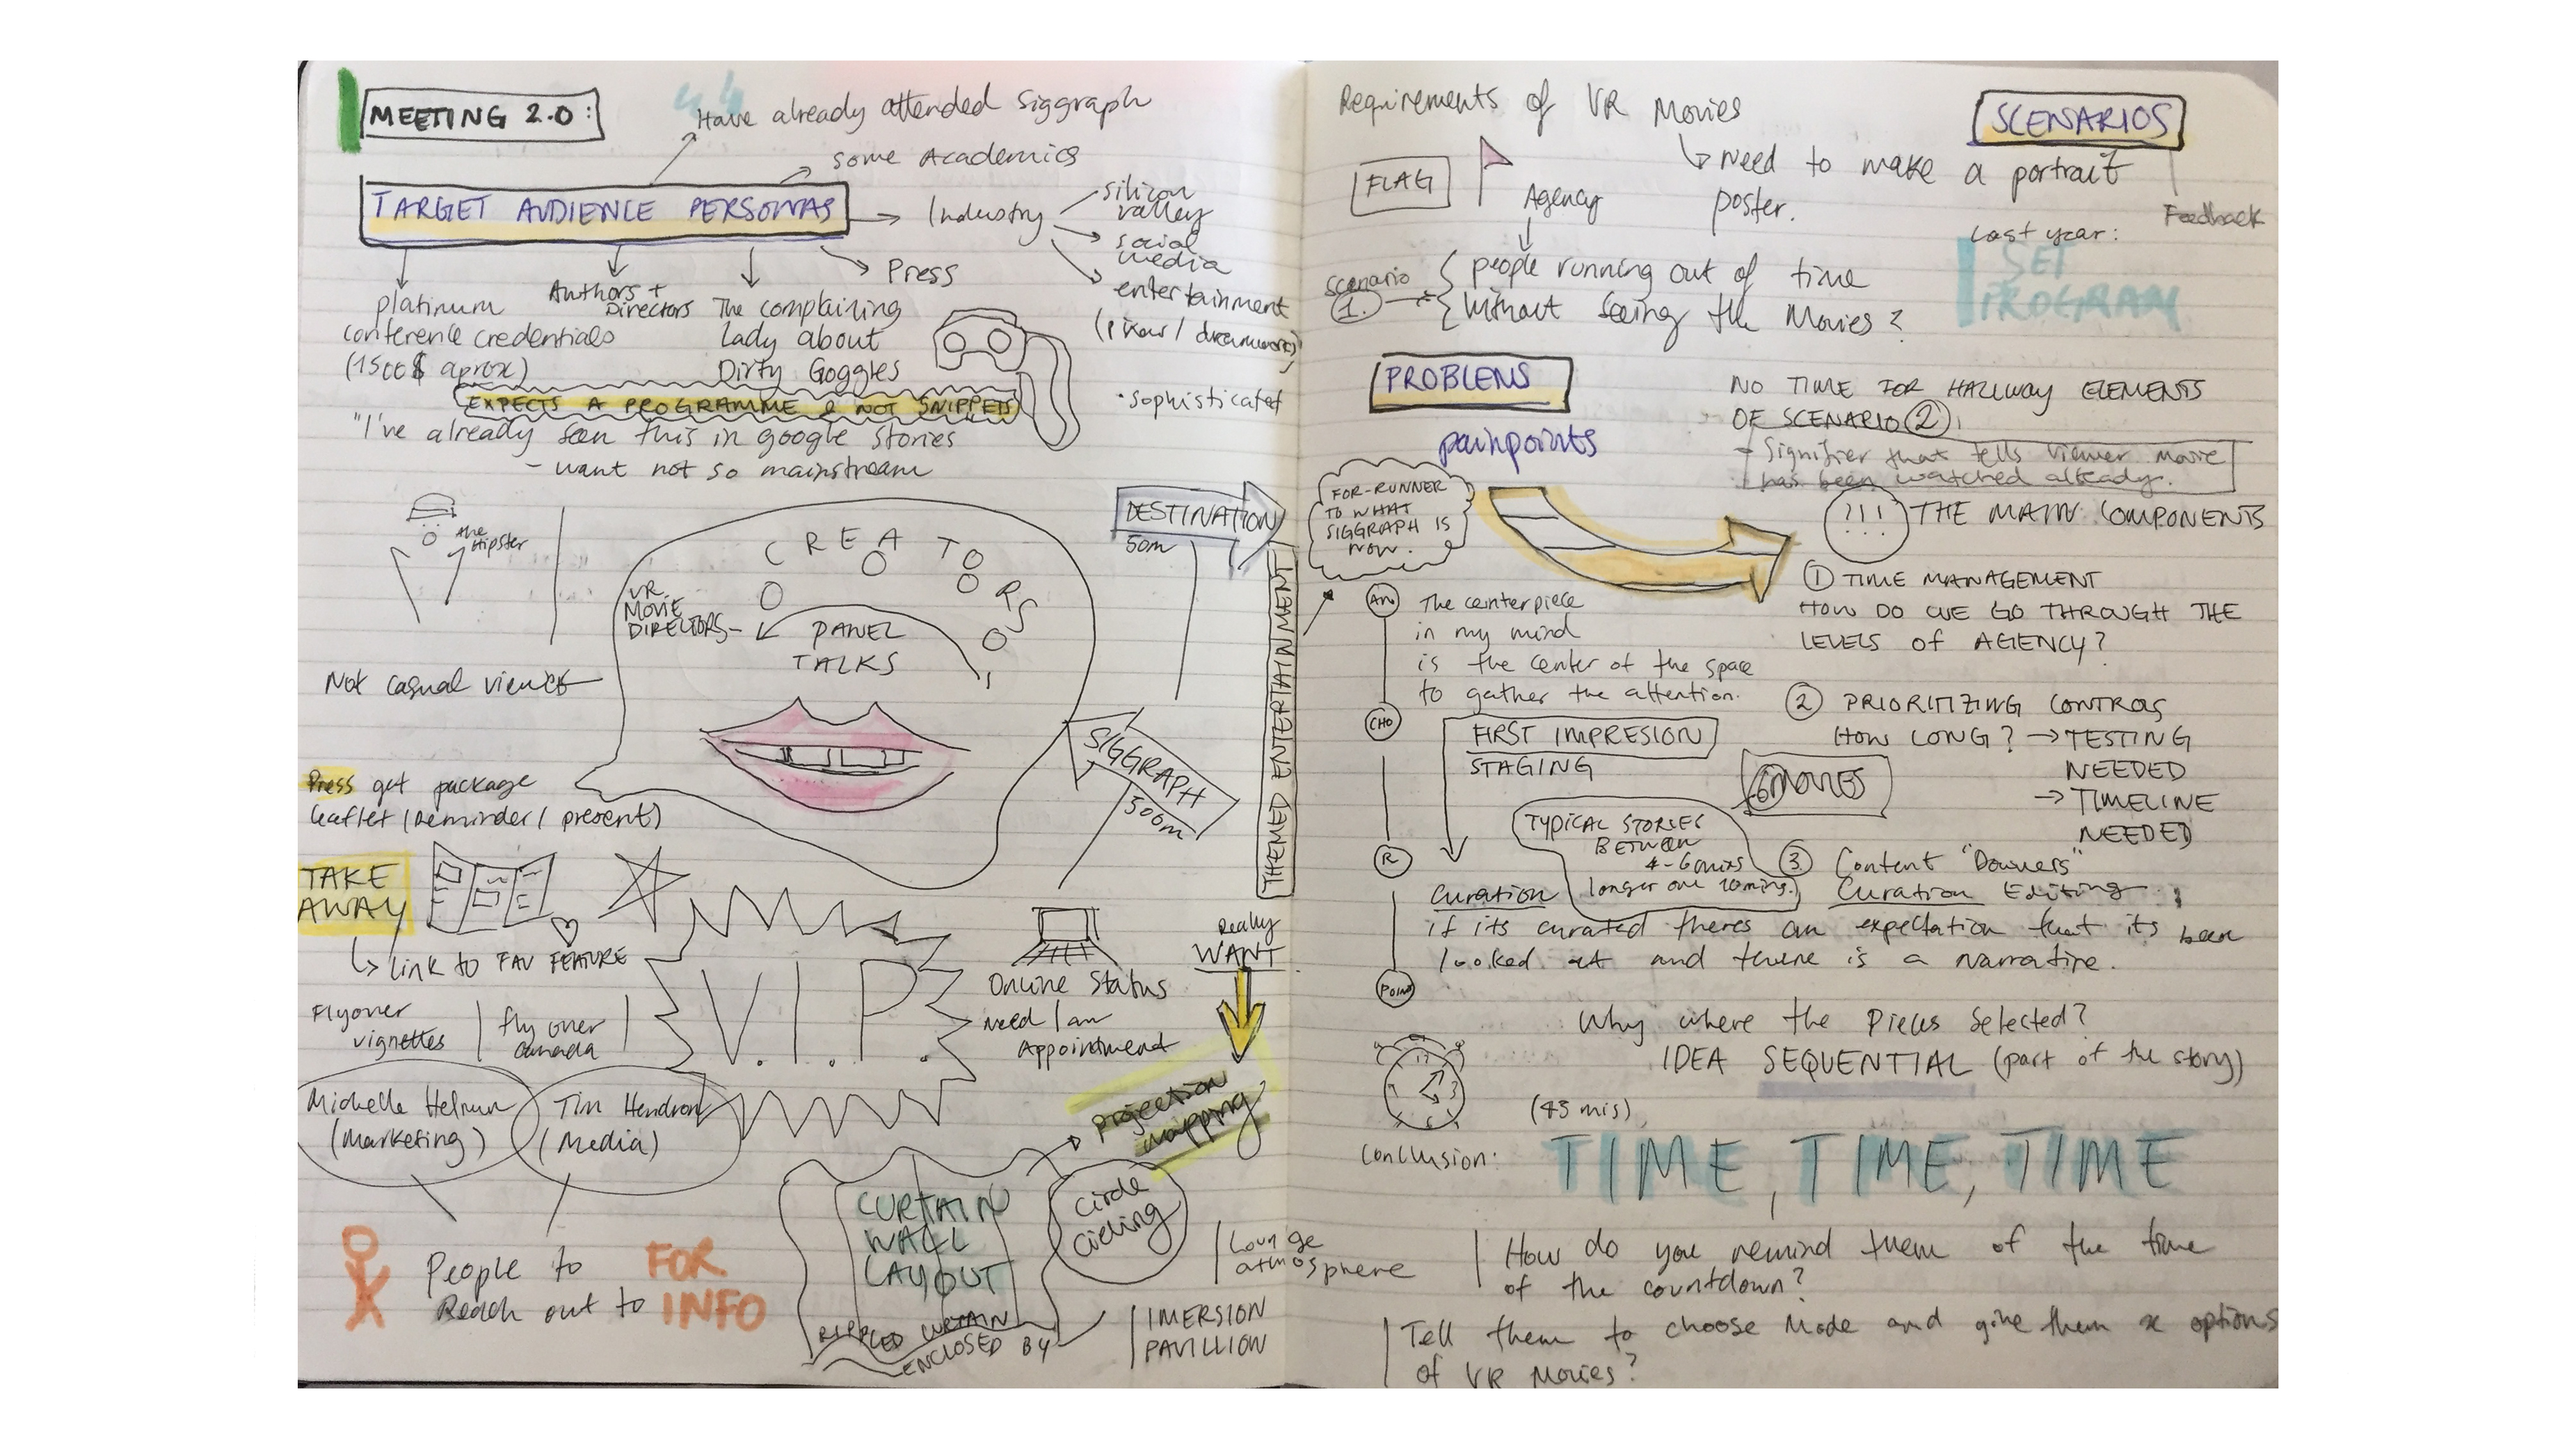 MEETING 2.0:
Have already attended Siggraph
some Academics
TARGET AUDIENCE PERSONAS
Industry
silicon
valley
social
media
entertainment
• sophisticated
Press
platinum
conference credentials
Authors +
Directors
The complaining
lady about
Dirty Goggles
EXPECTS A PROGRAMME & NOT SNIPPETS
"I've already seen this in google stories
- want not so mainstream
the
Hipster
CREATORS
VR
MOVIE
DIRECTORS-
PANEL
TALKS
Not casual
DESTINATION
50m
SIGGRAPH
500m
THEMED ENTERTAINMENT
Press get package
leaflet / present)
TAKE
AWAY
link to FAV FEATURE
Flyover
vignettes
fly over
canada
V.I.P.
Online Status
Need an
Appointment
Really
WANT
projection
mapping
Michelle
(Marketing)
Tim
(Media)
People to
Reach out to
FOR
INFO
CURTAIN
WALL
LAYOUT
RIPPLED CURTAIN
ENCLOSED BY
circle
cieling
Lounge
atmosphere
IMERSION
PAVILLION
Requirements of VR Movies
need to make a portrait
poster.
SCENARIOS
Feedback
Last year:
SET
PROGRAM
FLAG
Agency
scenario
1.
people running out of time
without seeing the Movies?
PROBLEMS
painpoints
NO TIME FOR HALLWAY ELEMENTS
OF SCENARIO 2
- Signifier that tells viewer movie
has been watched already.
FOR-RUNNER
TO WHAT
SIGGRAPH IS
NOW.
!!! THE MAIN COMPONENTS
1 TIME MANAGEMENT
HOW DO WE GO THROUGH THE
LEVELS OF AGENCY?
AN
CHO
R
POINT
The centerpiece
in my mind
is the center of the space
to gather the attention.
FIRST IMPRESION
STAGING
2 PRIORITIZING CONTROLS
HOW LONG? → TESTING
NEEDED
→ TIMELINE
NEEDED
6 MOVIES
TYPICAL STORIES
BETWEEN
longer one
3 Content "Downers"
Curation
Curation Editing
if its curated theres an expectation that its been
looked at and there is a narrative.
Why where the pieces selected?
IDEA SEQUENTIAL (part of the story)
(45 mis)
Conclusion:
TIME, TIME, TIME
How do you remind them of the time
of the countdown?
Tell them to choose Mode and give them x options
of VR Movies?